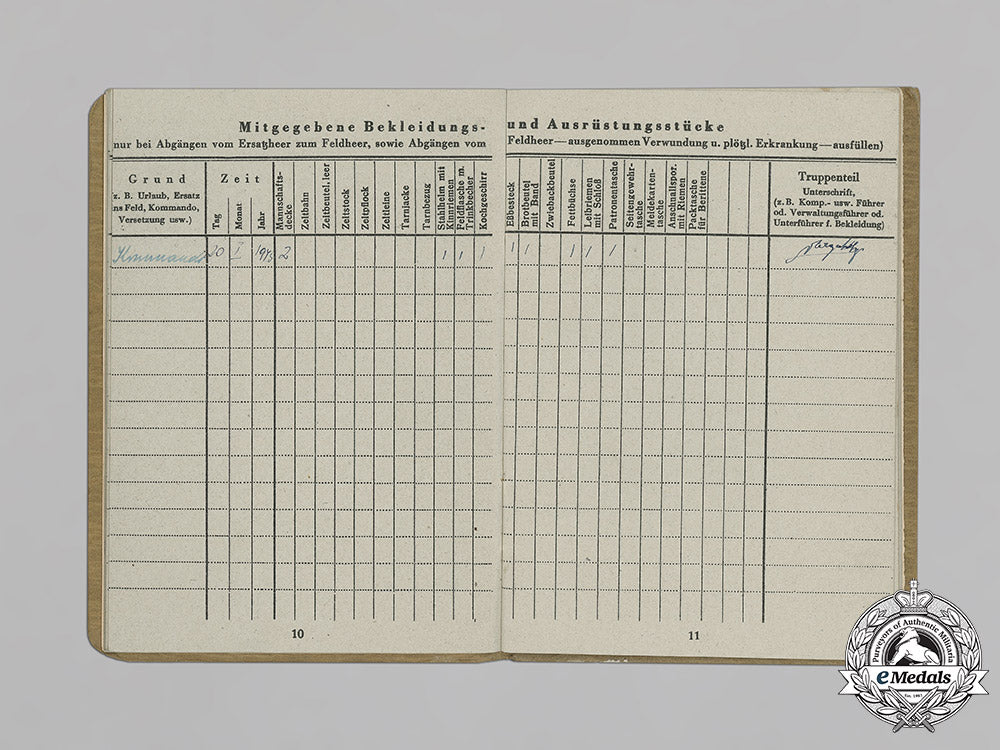 Mitgegebene Bekleidungs- und Ausrüstungsstücke
nur bei Abgängen vom Ersatzheer zum Feldheer, sowie Abgängen vom Feldheer — ausgenommen Verwundung u. plötzl. Erkrankung — ausfüllen)
Grund
(z. B. Urlaub, Ersatz
ins Feld, Kommando,
Versetzung usw.)
Zeit
Tag
Monat
Jahr
Mannschafts-
decke
Zeltbahn
Zeltbeutel, leer
Zeltstock
Zeltpflock
Zeltleine
Tarnjacke
Tarnbezug
Stahlhelm mit
Kinnriemen
Feldflasche m.
Trinkbecher
Kochgeschirr
Eßbesteck
Brotbeutel
mit Band
Zwiebackbeutel
Fettbüchse
Leibriemen
mit Schloß
Patronentasche
Seitengewehr-
tasche
Meldekarten-
tasche
Anschnallspor.
mit Riemen
Packtasche
für Berittene
Truppenteil
Unterschrift,
(z. B. Komp.- usw. Führer
od. Verwaltungsführer od.
Unterführer f. Bekleidung)
Kommando 20 I 1943 2 1 1 1 1 1 1 1 1
10
11
Purveyors of Authentic Militaria
eMedals